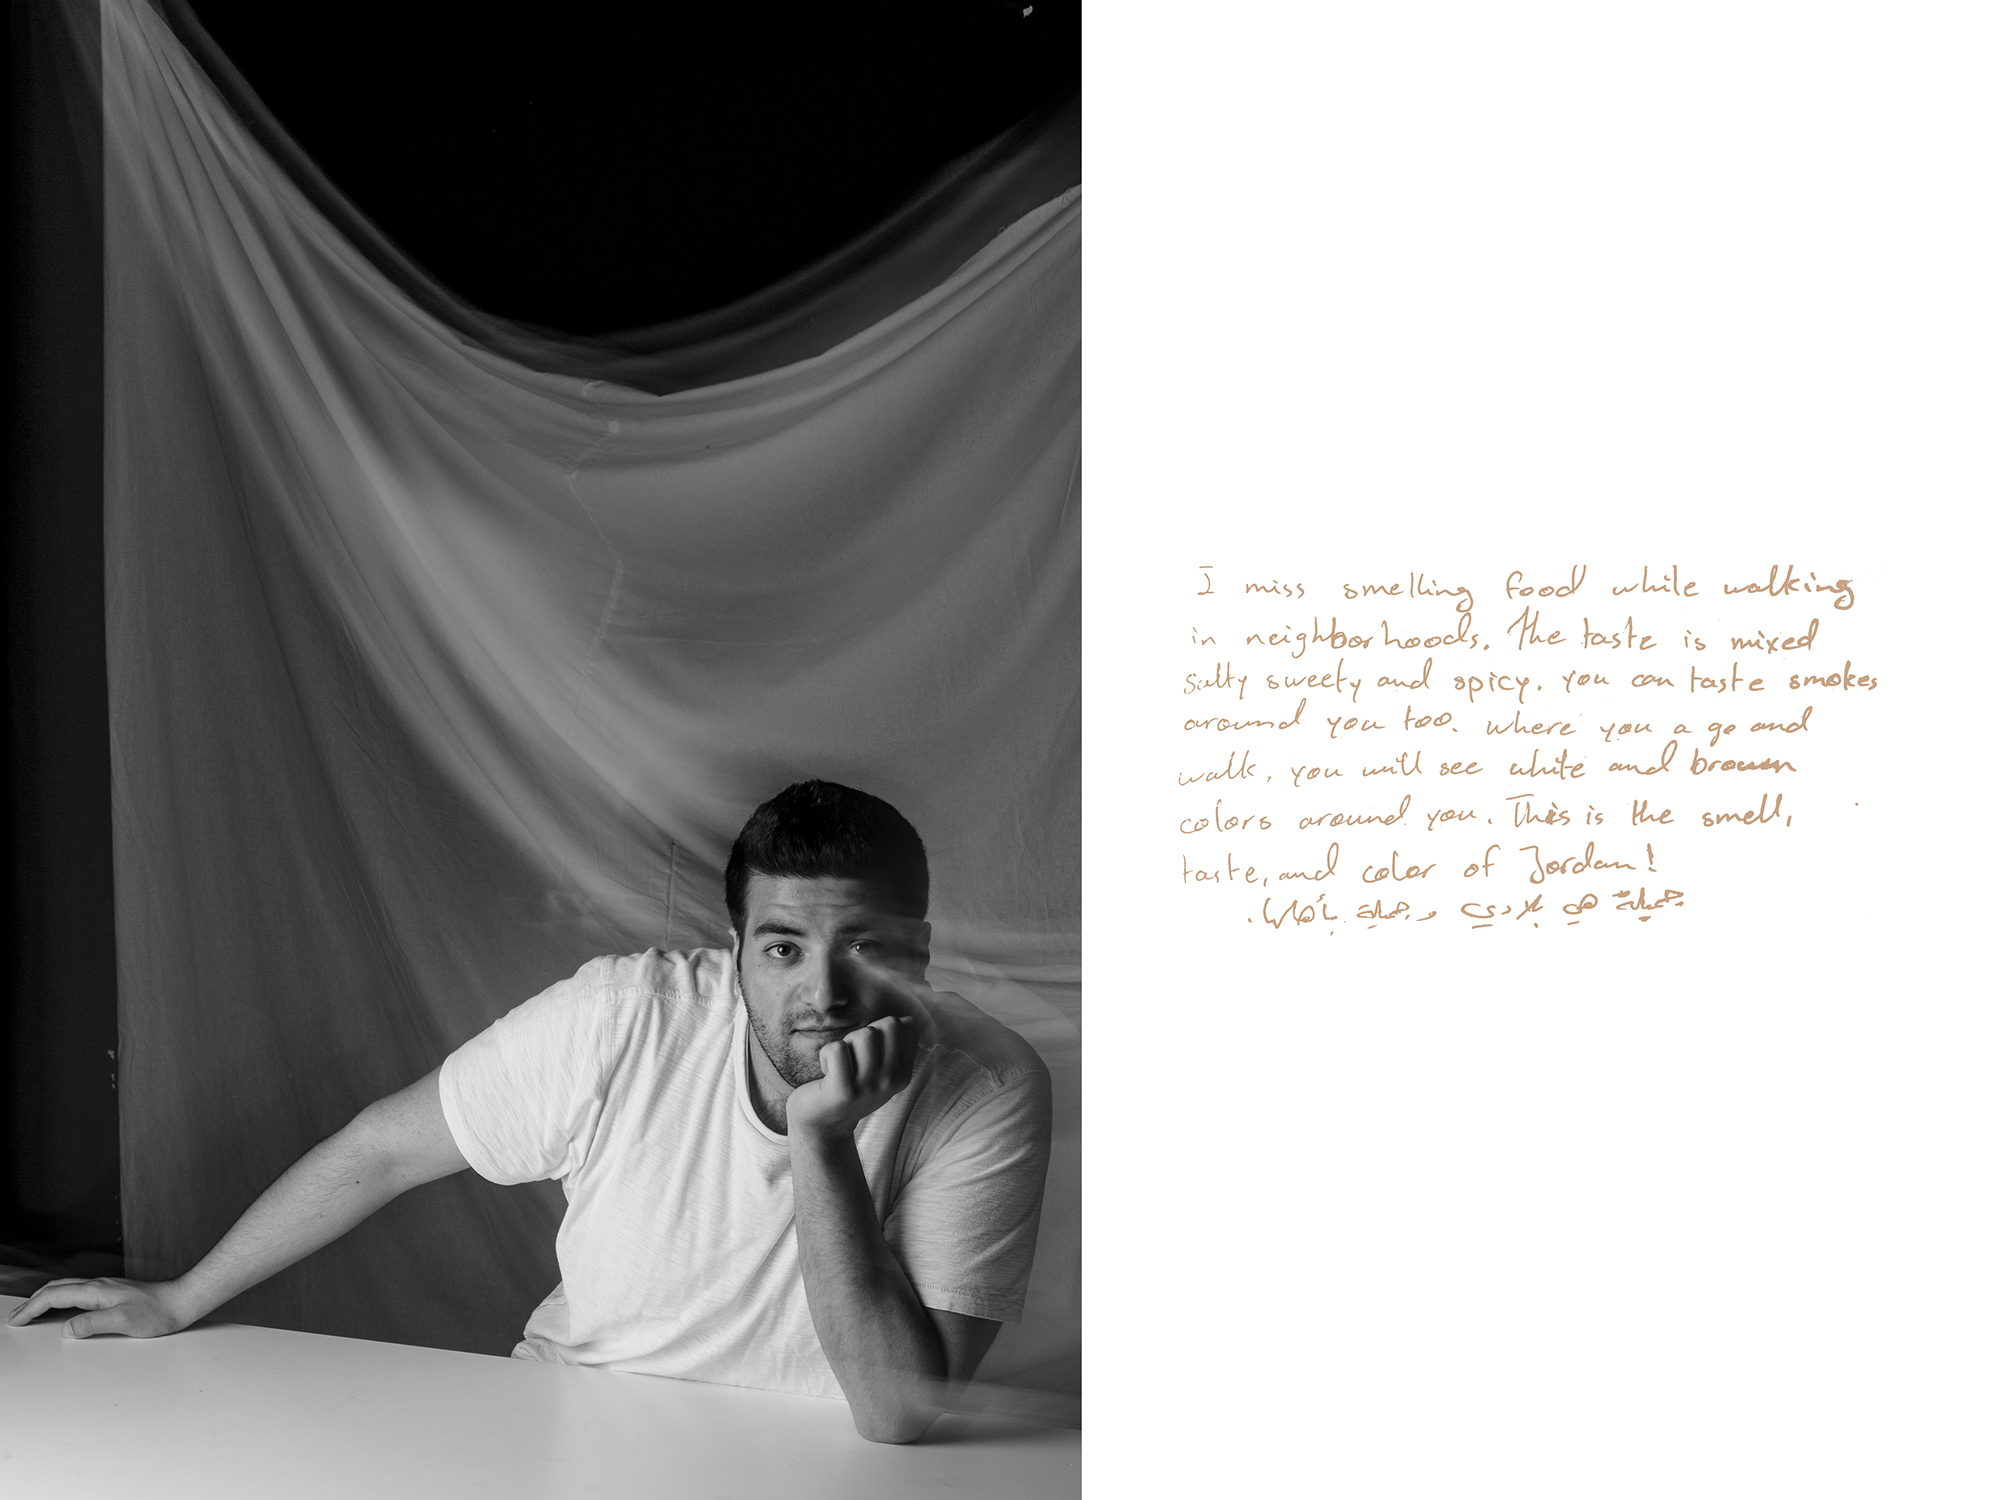 I miss smelling food while walking
in neighborhoods. The taste is mixed
salty sweety and spicy. you can taste smokes
around you too. where you a go and
walk, you will see white and brown
colors around you. This is the smell,
taste, and color of Jordan!
جميلةٌ هي بلادي وجميلة بأهلها.